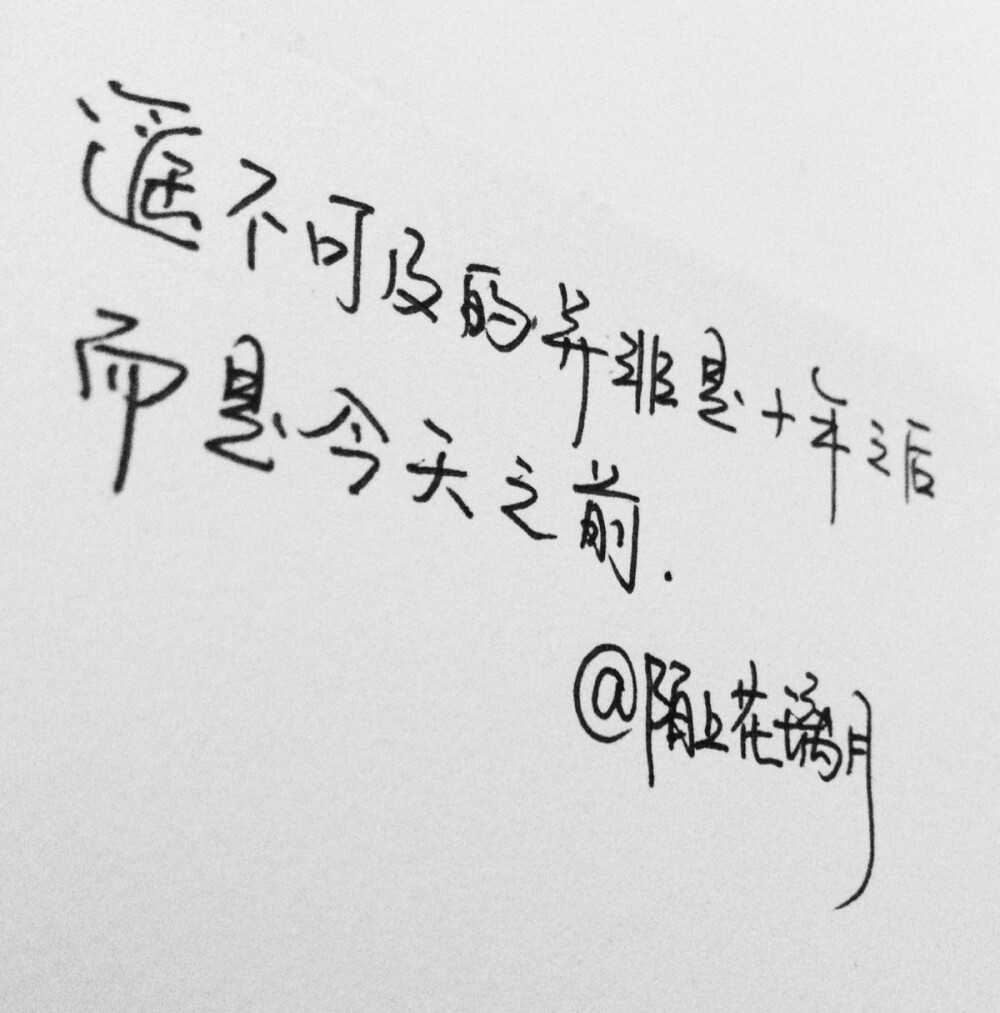 遥不可及的并非是十年之后
而是今天之前.
@陌上花璃月